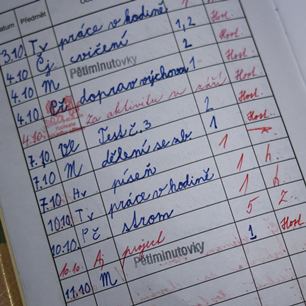 Datum Předmět
3.10. Tv práce v hodině 1
4.10. Čj cvičení 1,2 Horl.
4.10. M Pětiminutovky 1 Horl.
4.10. doprav. výchova 1 Horl.
4.10. Za aktivitu v září
7.10. Vl Test č. 3 2 Horl.
7.10. M dělení se zb. 1 Horl.
7.10. Hv píseň 1 h.
10.10. Tv práce v hodině 1 h.
10.10. Pč strom 5 Z.
10.10. Aj project
11.10. M Pětiminutovky 1 Horl.